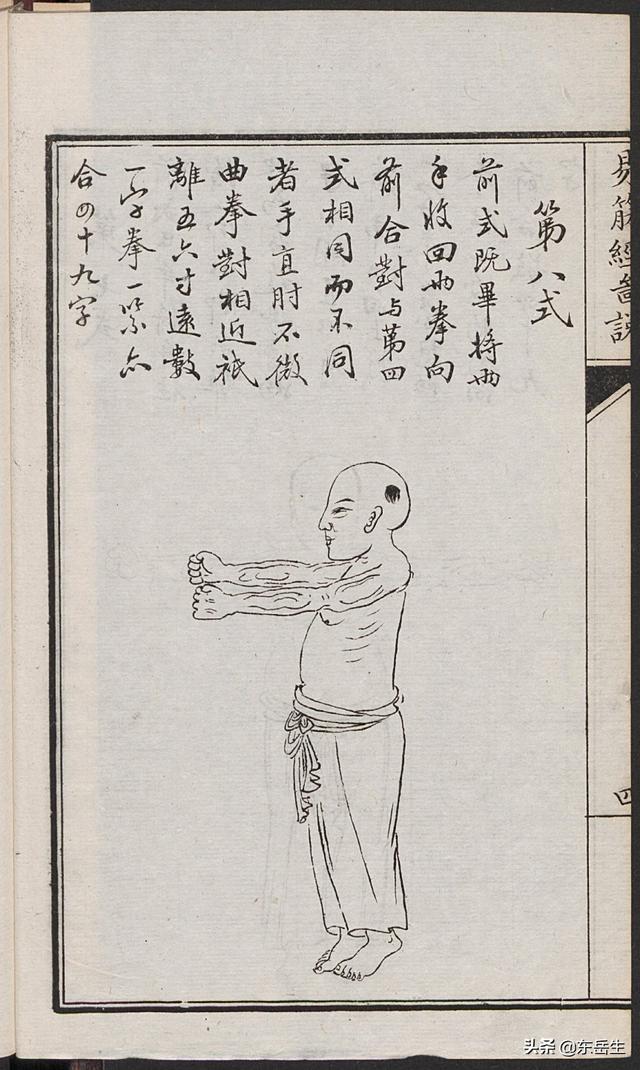 易筋經啚說
四
第八式
前式既畢將兩
手收回兩拳向
前合對与第四
式相同而不同
者手直肘不微
曲拳對相近祇
離五六寸遠數
一字拳一紧亦
合四十九字
头条 @东岳生